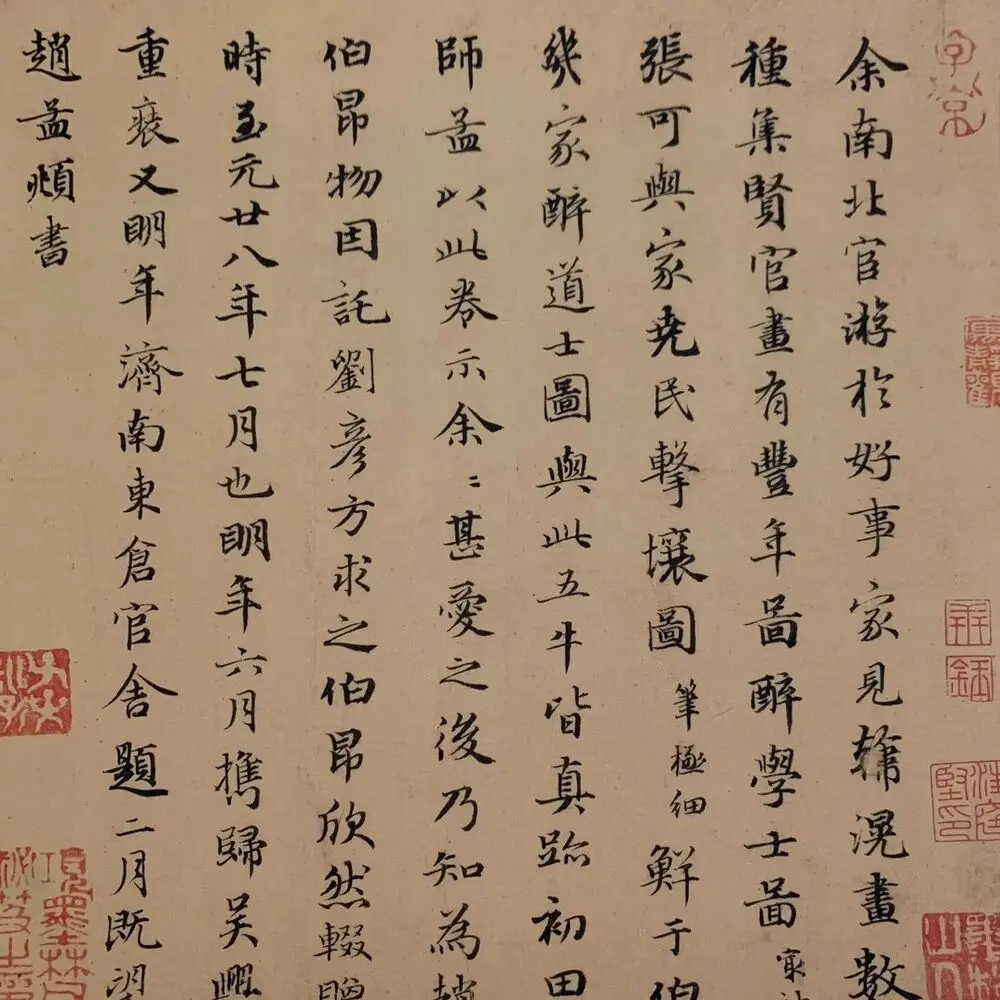 余南北官游於好事家見韓滉畫數
種集賢官畫有豐年啚醉學士啚
張可與家尭民擊壤圖筆極細鮮于伯
幾家醉道士圖與此五牛皆真跡初田
師孟以此卷示余〻甚愛之後乃知為趙
伯昂物因託劉彥方求之伯昂欣然輟贈
時至元廿八年七月也明年六月攜歸吳興
重裝又明年濟南東倉官舍題二月既望
趙孟頫書